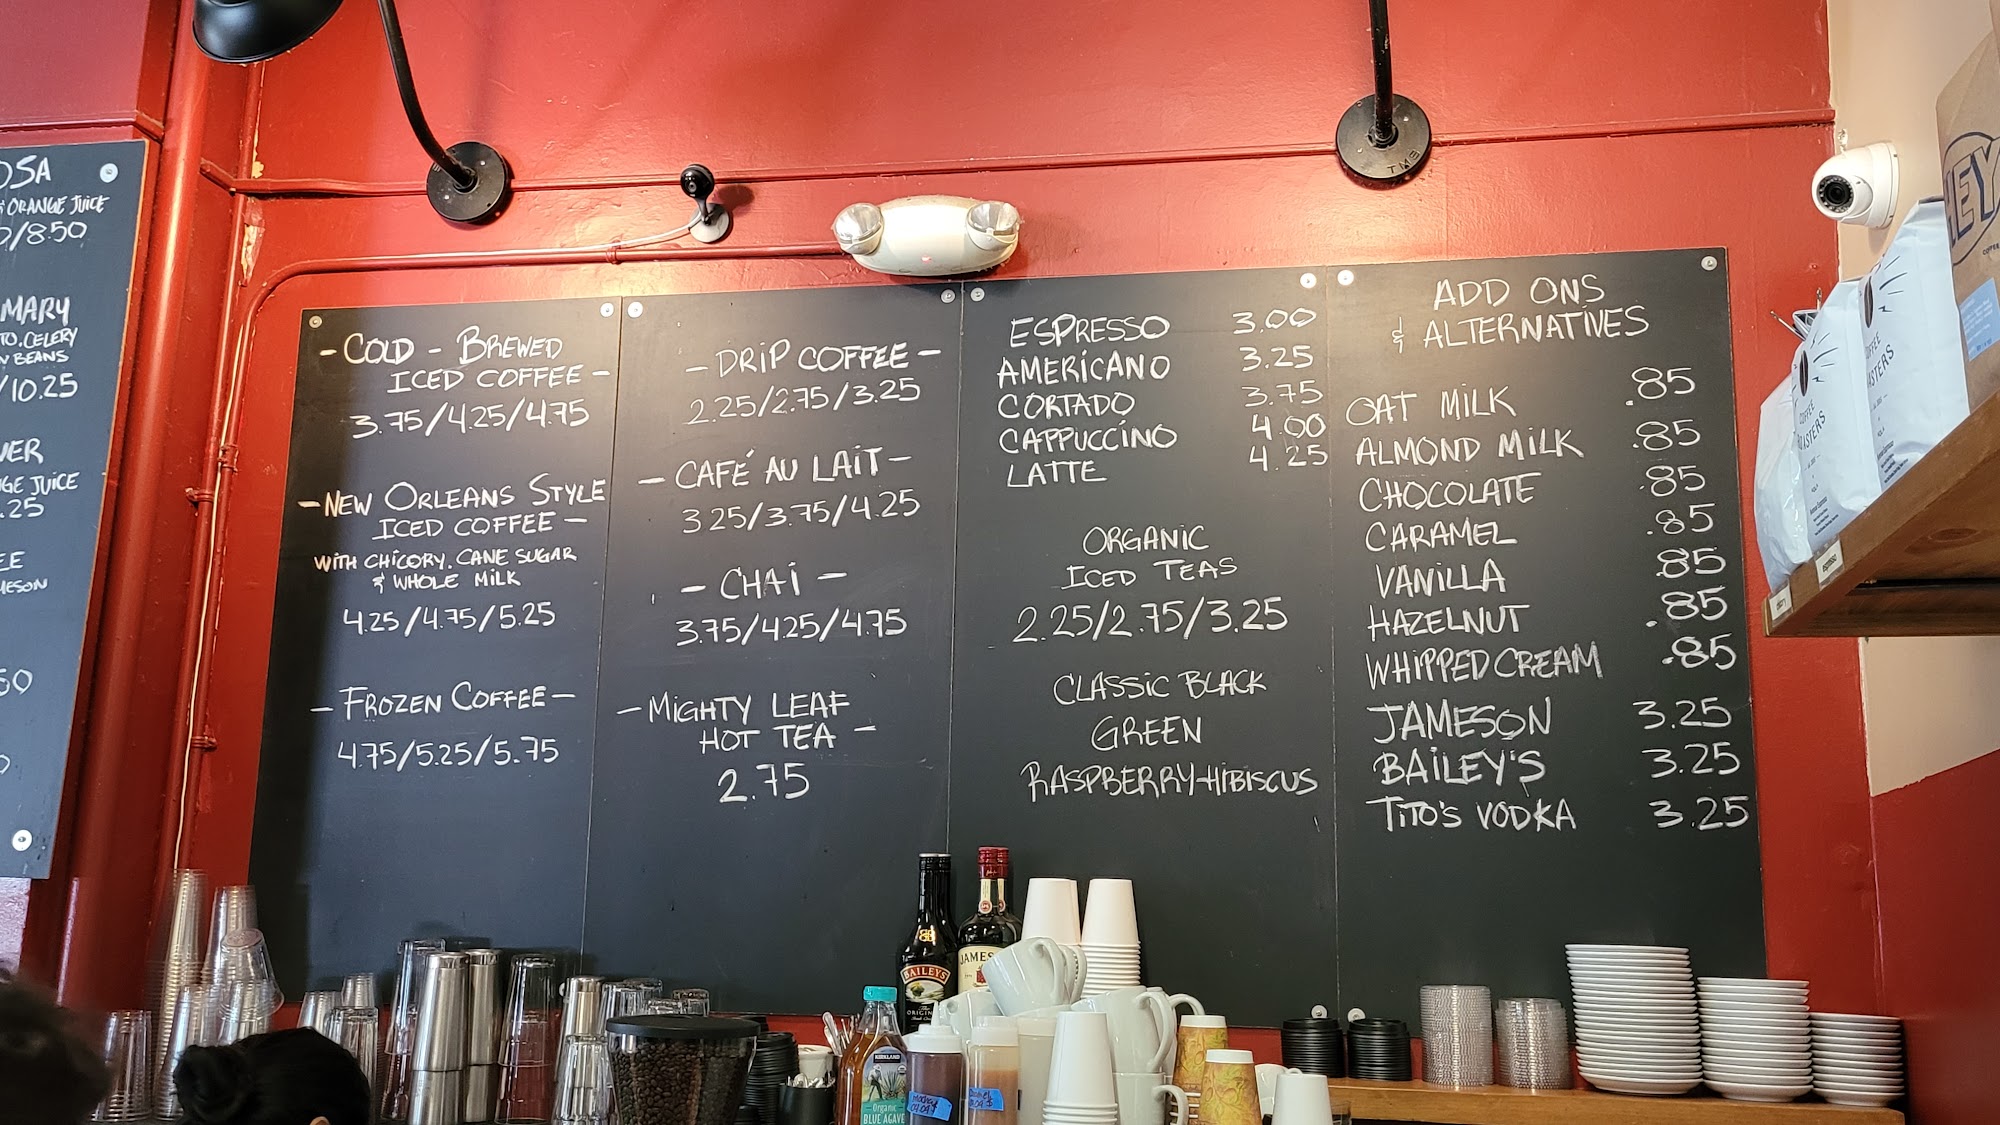 OSA
& ORANGE JUICE
/8.50
MARY
TO. CELERY
BEANS
/10.25
VER
GE JUICE
.25
EE
MESON
50
- COLD - BREWED
ICED COFFEE -
3.75/4.25/4.75
- NEW ORLEANS STYLE
ICED COFFEE -
WITH CHICORY, CANE SUGAR
& WHOLE MILK
4.25/4.75/5.25
- FROZEN COFFEE -
4.75/5.25/5.75
- DRIP COFFEE -
2.25/2.75/3.25
- CAFÉ AU LAIT -
3 25/3.75/4.25
- CHAI -
3.75/4.25/4.75
- MIGHTY LEAF
HOT TEA -
2.75
ESPRESSO 3.00
AMERICANO 3.25
CORTADO 3.75
CAPPUCCINO 4.00
LATTE 4.25
ORGANIC
ICED TEAS
2.25/2.75/3.25
CLASSIC BLACK
GREEN
RASPBERRY-HIBISCUS
ADD ONS
& ALTERNATIVES
OAT MILK .85
ALMOND MILK .85
CHOCOLATE .85
CARAMEL .85
VANILLA .85
HAZELNUT .85
WHIPPED CREAM .85
JAMESON 3.25
BAILEY'S 3.25
TITO'S VODKA 3.25
TMB
HEY
COFFEE
ROASTERS
COFFEE
ROASTERS
espresso
BAILEYS
ORIGINAL
JAMES
KIRKLAND
Organic
BLUE AGAVE